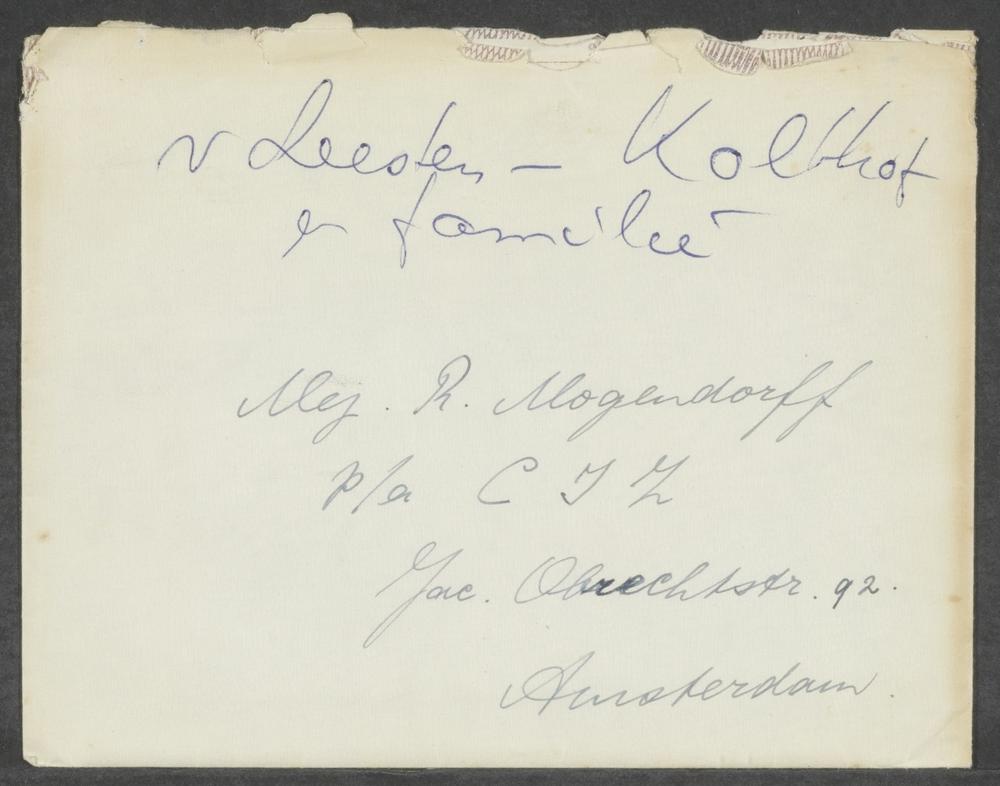 v Leesten - Kolthof
en familie
Mej. R. Mogendorff
p/a C I Z
Jac. Obrechtstr. 92.
Amsterdam.